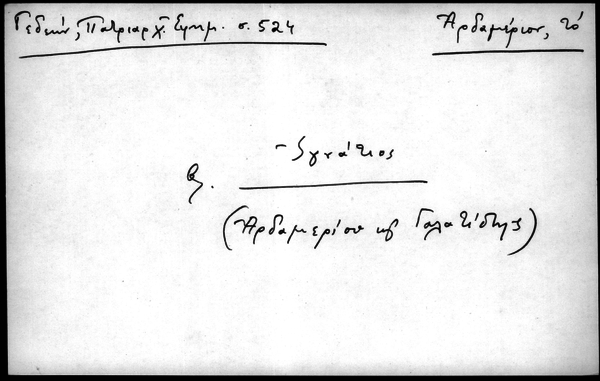 Γεδεών, Πατριαρχ. Εφημ. σ. 524
Ἀρδαμέριον, τό
β. Ἰγνάτιος
(Ἀρδαμερίου κ Γαλατίστης)